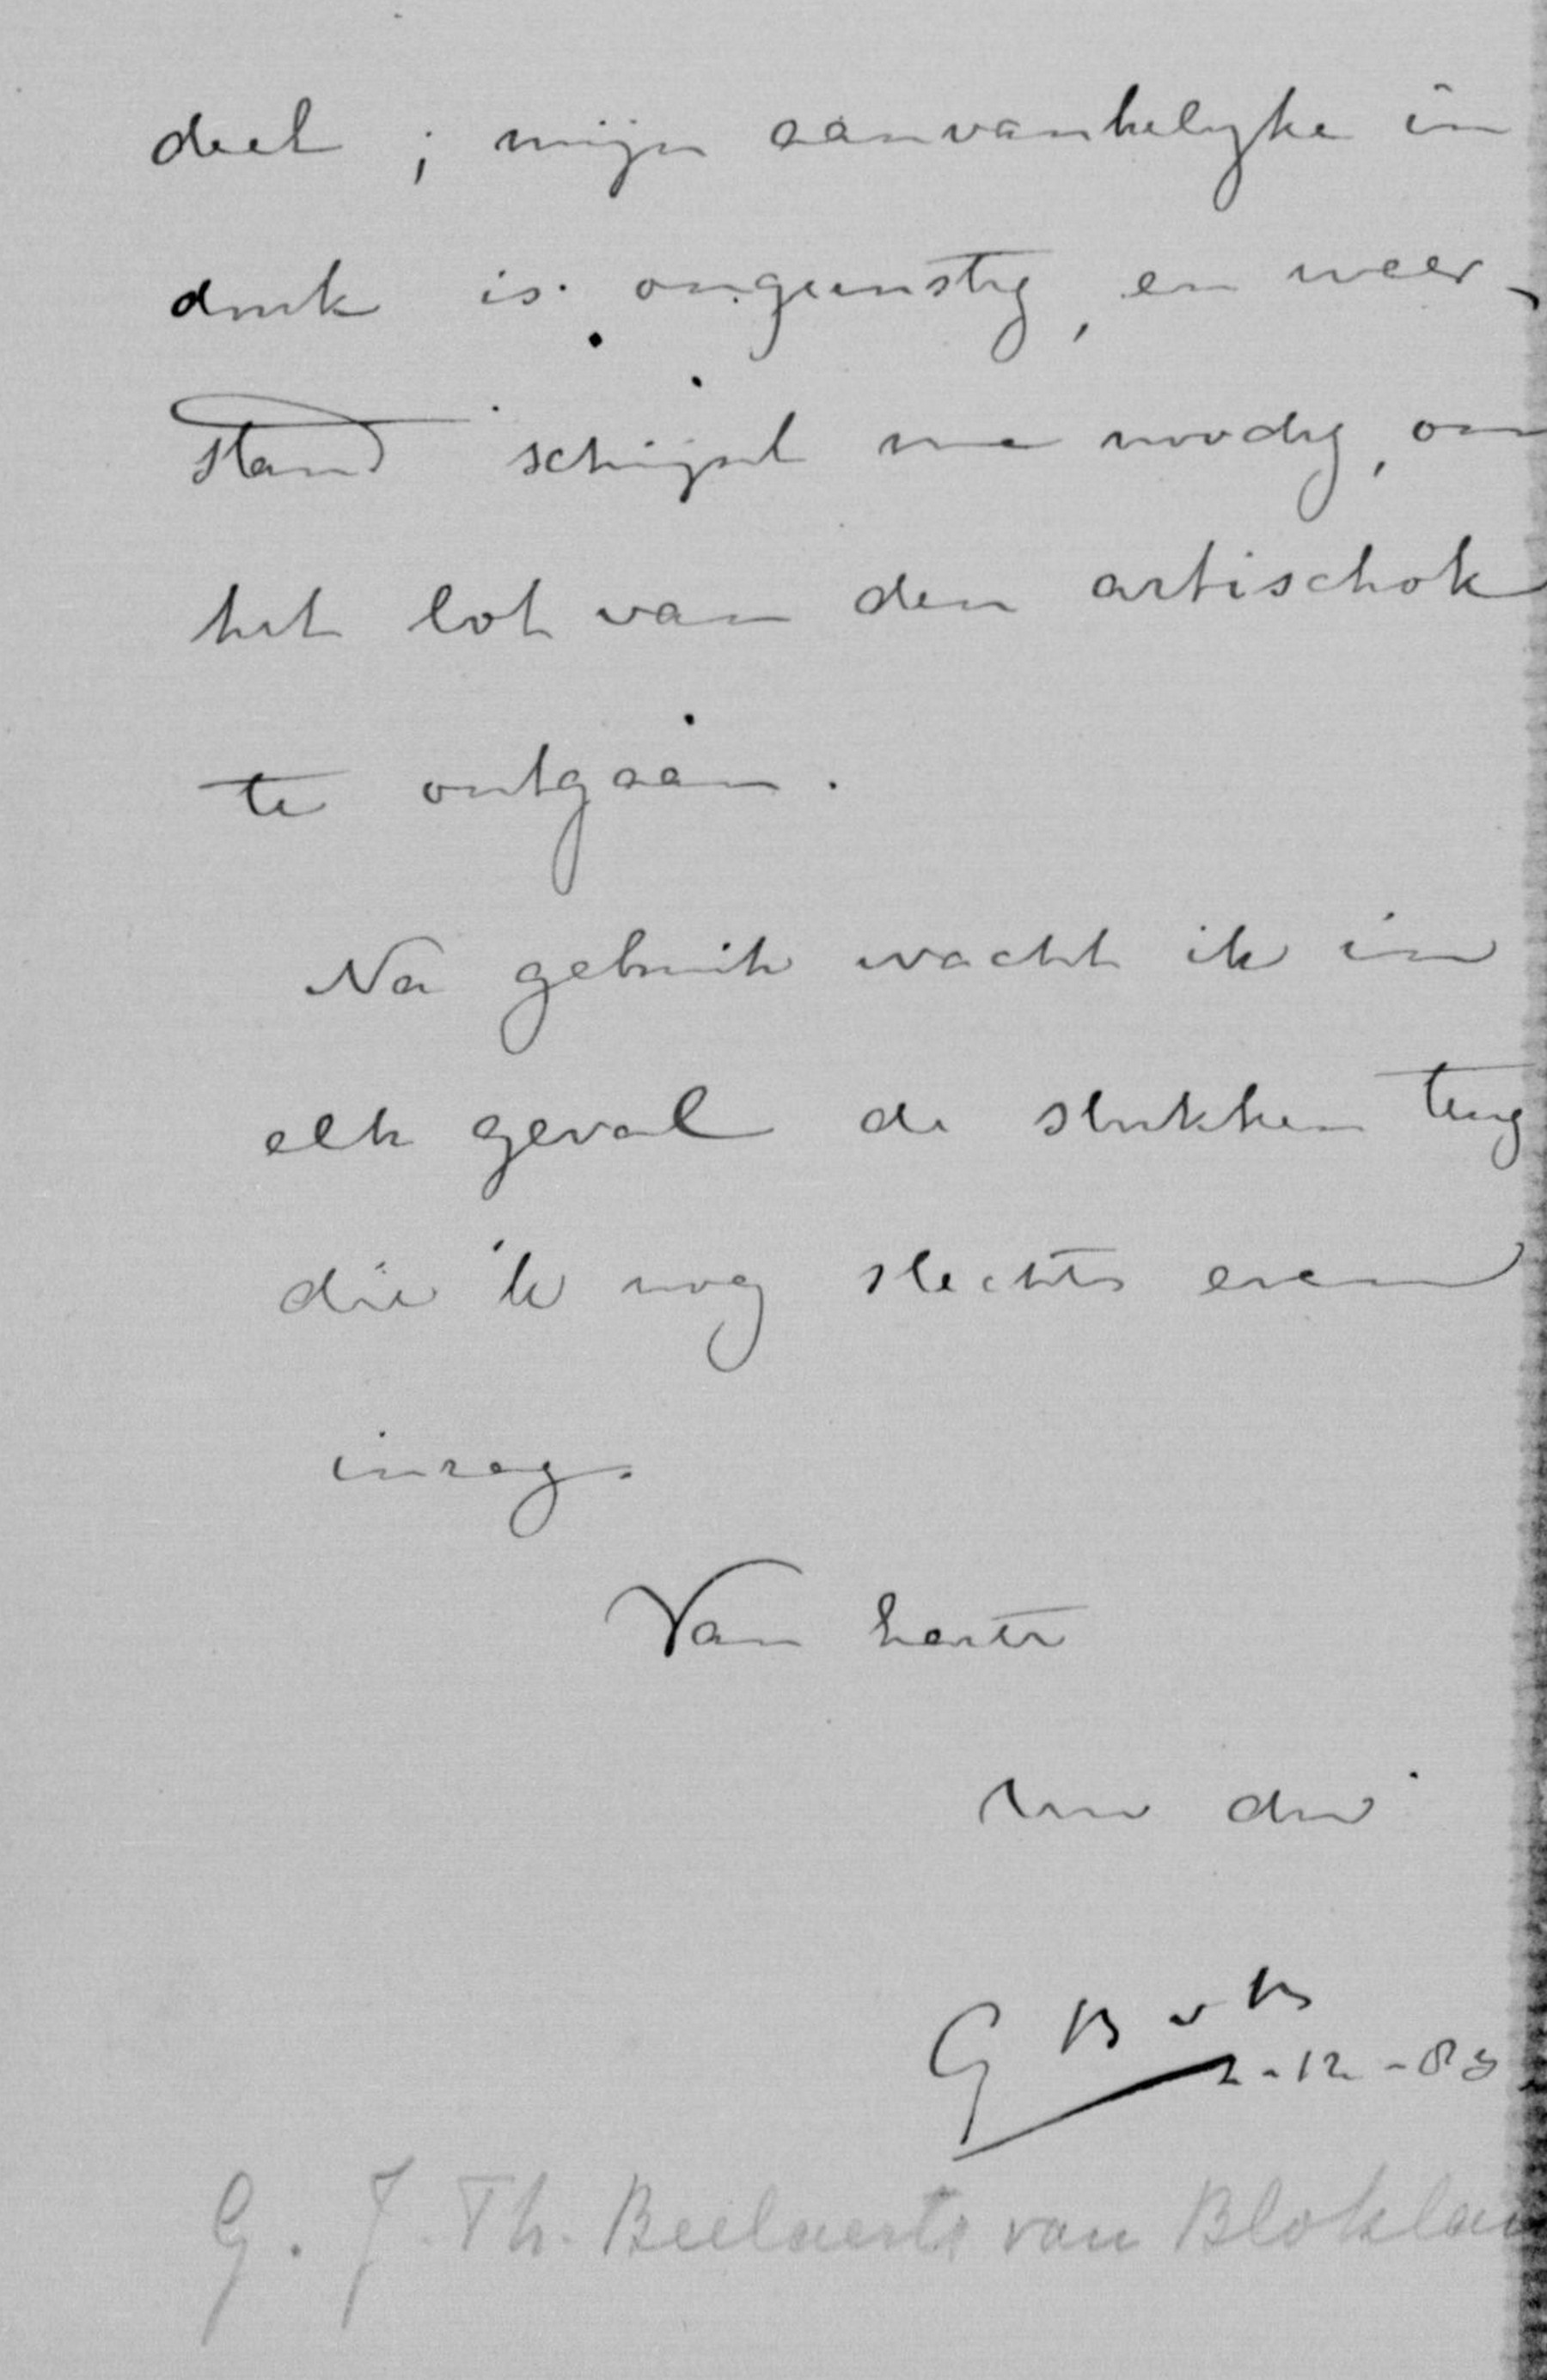 deel; mijn aanvankelyke in
druk is ongunstig, en weer-
stand schijnt me noodig, om
het lot van den artischok
te ontgaan.
Na gebruik wacht ik in
elk geval de stukken terug
die ik nog slechts even
inzag.
Van harte
Uw dw
G B v B
2-12-85
G. J. Th. Beelaerts van Bloklan